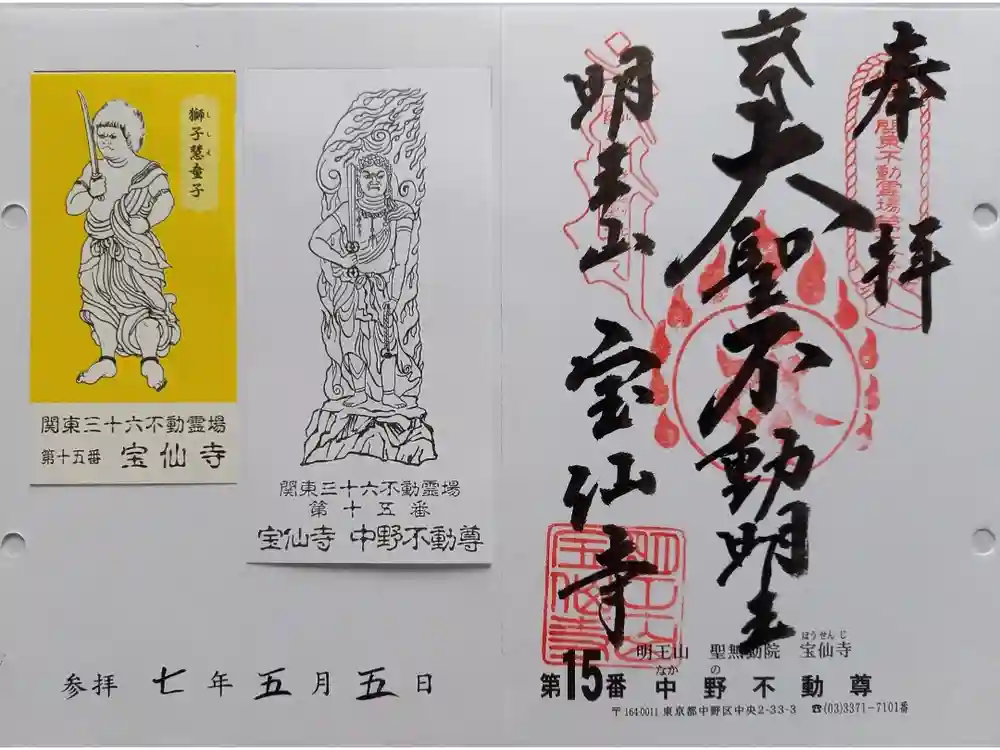 獅子慧童子
しし え
関東三十六不動霊場
第十五番 宝仙寺
関東三十六不動霊場
第十五番
宝仙寺 中野不動尊
参拝 七年五月五日
奉拝
大聖不動明王
明王山 宝仙寺
関東不動霊場第
明王山
宝仙寺
ほうせんじ
明王山 聖無動院 宝仙寺
なか の
第15番 中野不動尊
〒164-0011 東京都中野区中央2-33-3 ☎(03)3371-7101番